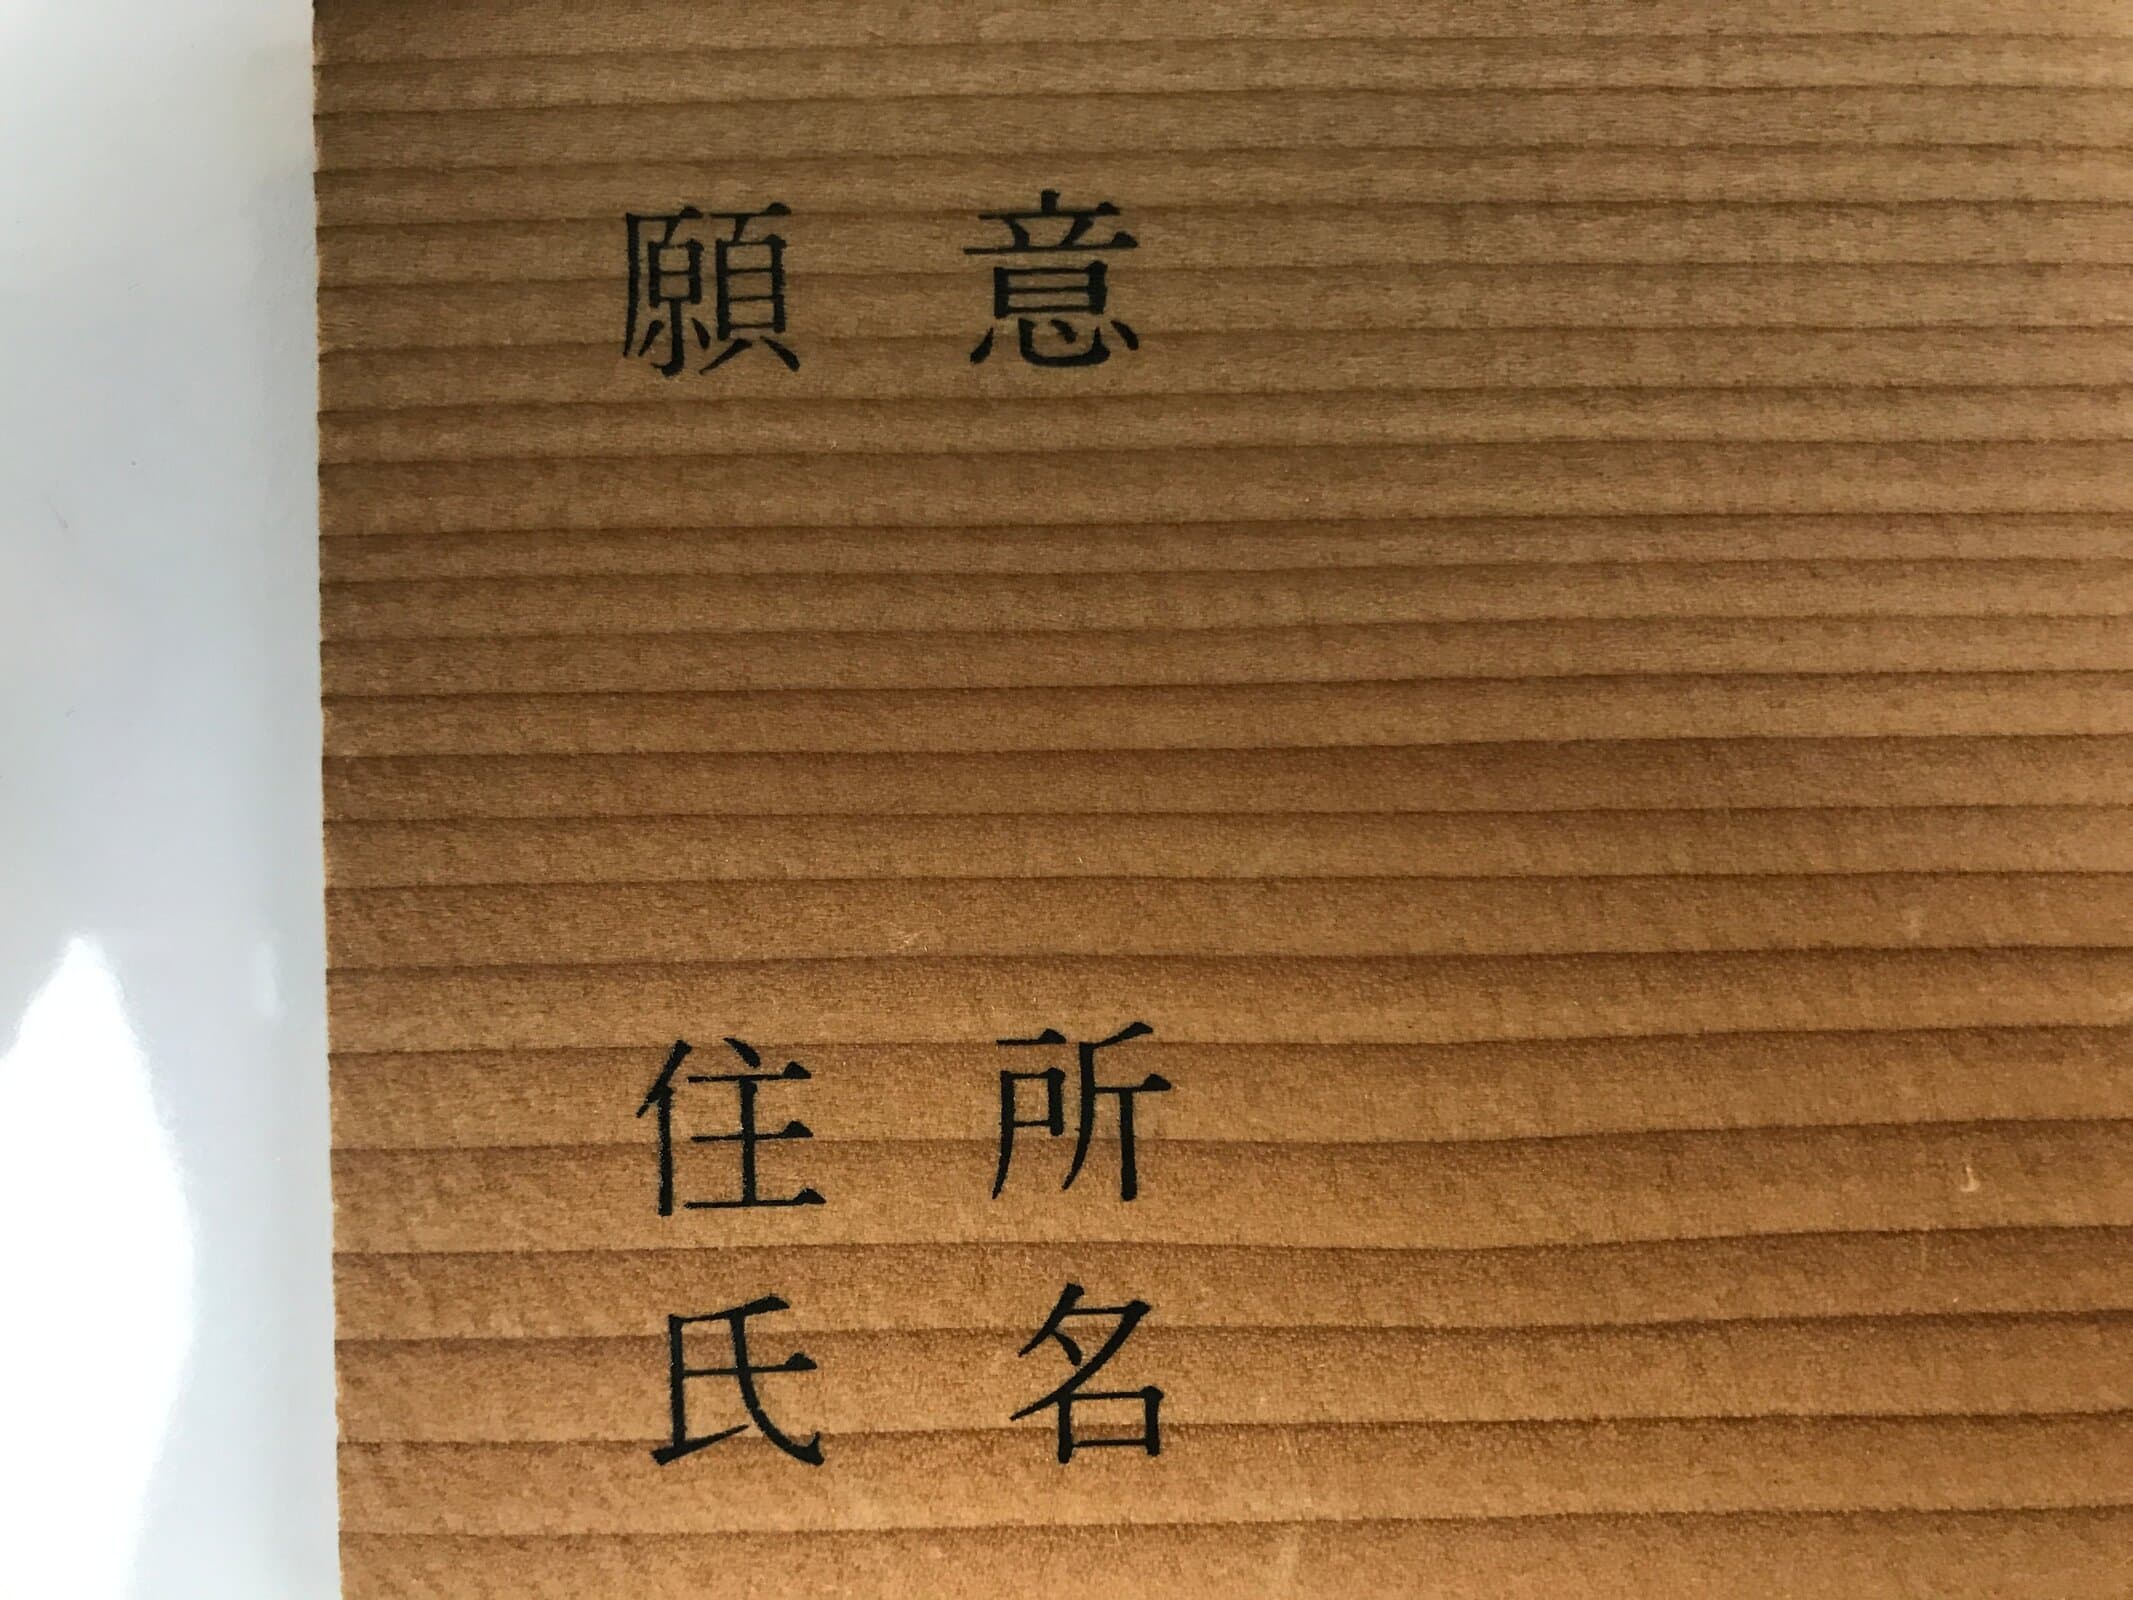 願意
住所
氏名